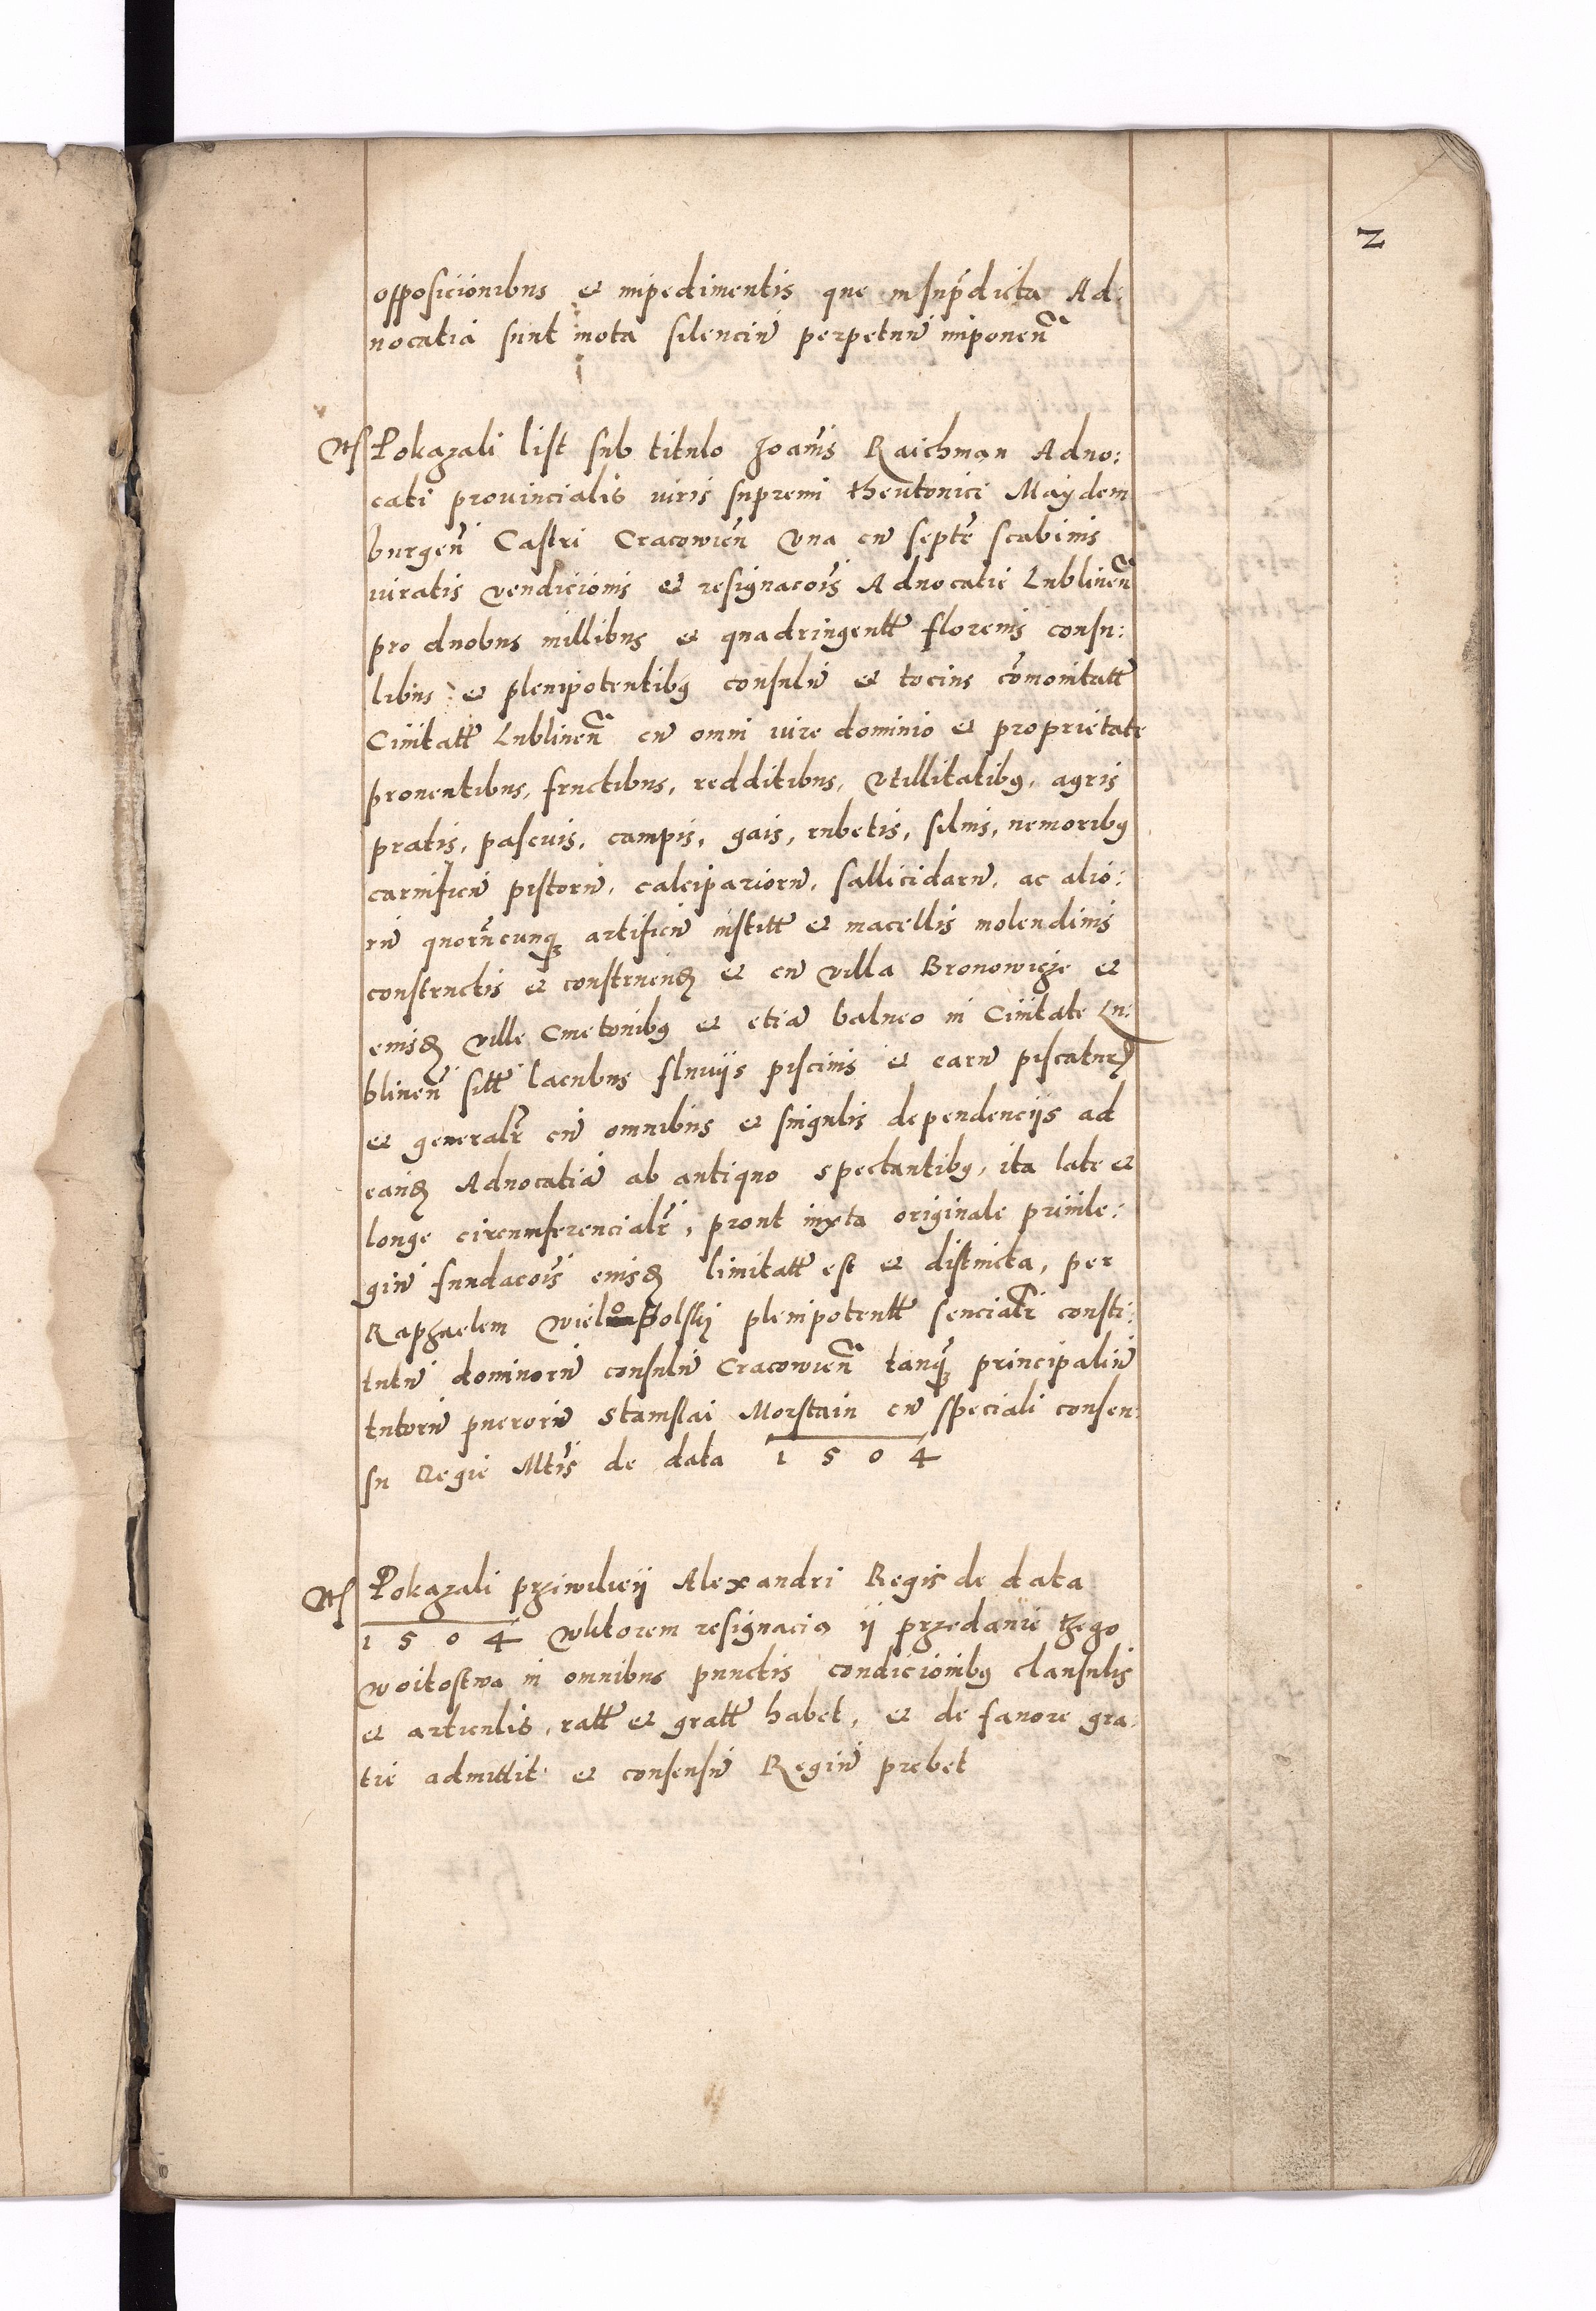 2
opposicionibus et impedimentis que in sup̃dicta Ad:
uocatiã sunt mota silenciũ perpetuũ imponeñ
Its Pokazali list sub titulo Joañis Raichman Aduo:
cati prouincialis iuris supremi theutonici Maydem
burgeñ Castri Cracowieñ vna cũ septẽ scabinis
iuratis vendicionis et resignacoĩs Aduocatie Lublineñ
pro duobus millibus et quadringentł florenis consu:
libus et plenipotentibꝰ consulũ et tocius cõmonitatł
Ciuitatł Lublineñ cũ omni iure dominio et proprietate
prouentibus, fructibus, redditibus, vtillitatibꝰ, agris
pratis, pascuis, campis, gais, rubetis, siluis, nemoribꝰ
carnificũ pistorũ, calcipariorũ, sallicidarũ, ac alio:
rũ quorũcunqꝫ artificũ institł et macellis molendinis
constructis et construenđ et cũ villa Bronowicze et
eiusđ ville Cmetonibꝰ et etiã balneo in Ciuitate Lu:
blineñ sitł lacubus fluuijs piscinis et earũ piscaturꝭ
et generalr̃ cũ omnibus et singulis dependencijs ad
eanđ Aduocatiã ab antiquo spectantibꝰ, ita late et
longe circumferencialr̃, prout iuxta originale priuile:
giũ fundacoĩs eiusđ limitatł est et distincta, per
Raphaelem Wielopolskj plenipotentł senciatr̃ consti:
tutũ dominorũ consulũ Cracowieñ tanqꝫ principaliũ
tutorũ puerorũ Stanislai Morstain cũ speciali consen:
su Regie Mtĩs de data 1504
Its Pokazali prziwileij Alexandri Regis de data
1504 wktorem resignacia ij przedanie tzego
woitostwa in omnibus punctis condicionibꝰ clausulis
et articulis, ratł et gratł habet, et de fauore gra:
tie admittit et consensũ Regiũ prebet